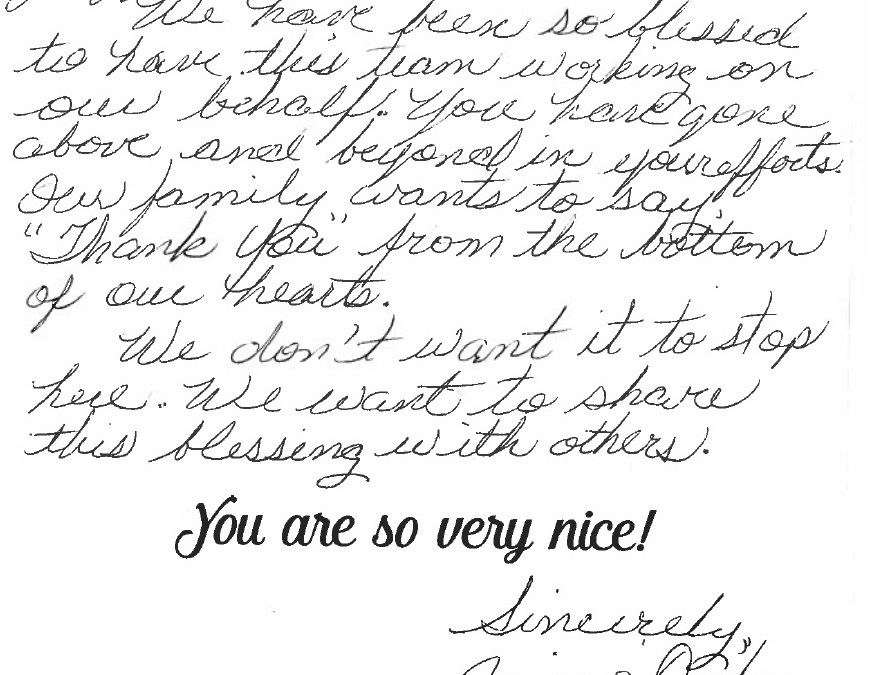 We have been so blessed
to have this team working on
our behalf. You have gone
above and beyond in your efforts.
Our family wants to say,
"Thank You" from the bottom
of our hearts.
We don't want it to stop
here. We want to share
this blessing with others.
You are so very nice!
Sincerely,